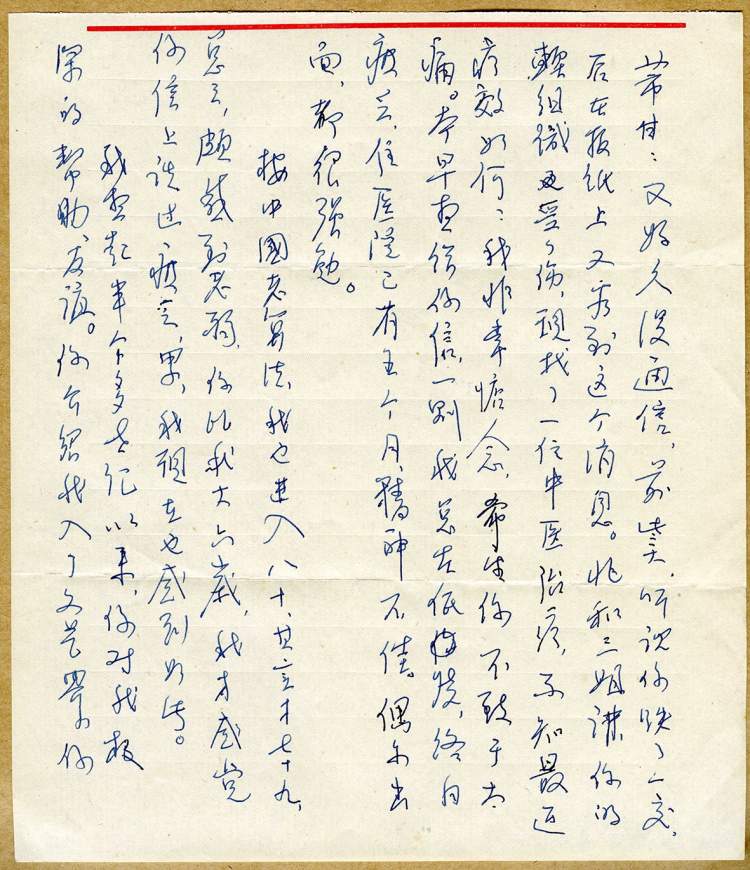 芾甘：又好久没通信，前些天，听说你跌了一交，
后在报纸上又看到这个消息。兆和三姐讲你的
软组织受了伤，现找了一位中医治疗，不知最近
疗效如何？我非常惦念，希望你不致于太
痛。本早直给你信，一则我总在低烧，终日
疲乏，住医院已有五个月，精神不佳。偶尔出
面，都很强勉。
按中國老算法，我也进入八十，其实才七十九，
总之，颇感到老弱，你比我大六岁，我才感觉
你信上说过疲乏，累，我现在也感到如此。
我想起半个多世纪以来，你对我极
深的幫助、友谊。你介绍我入了文艺界，你